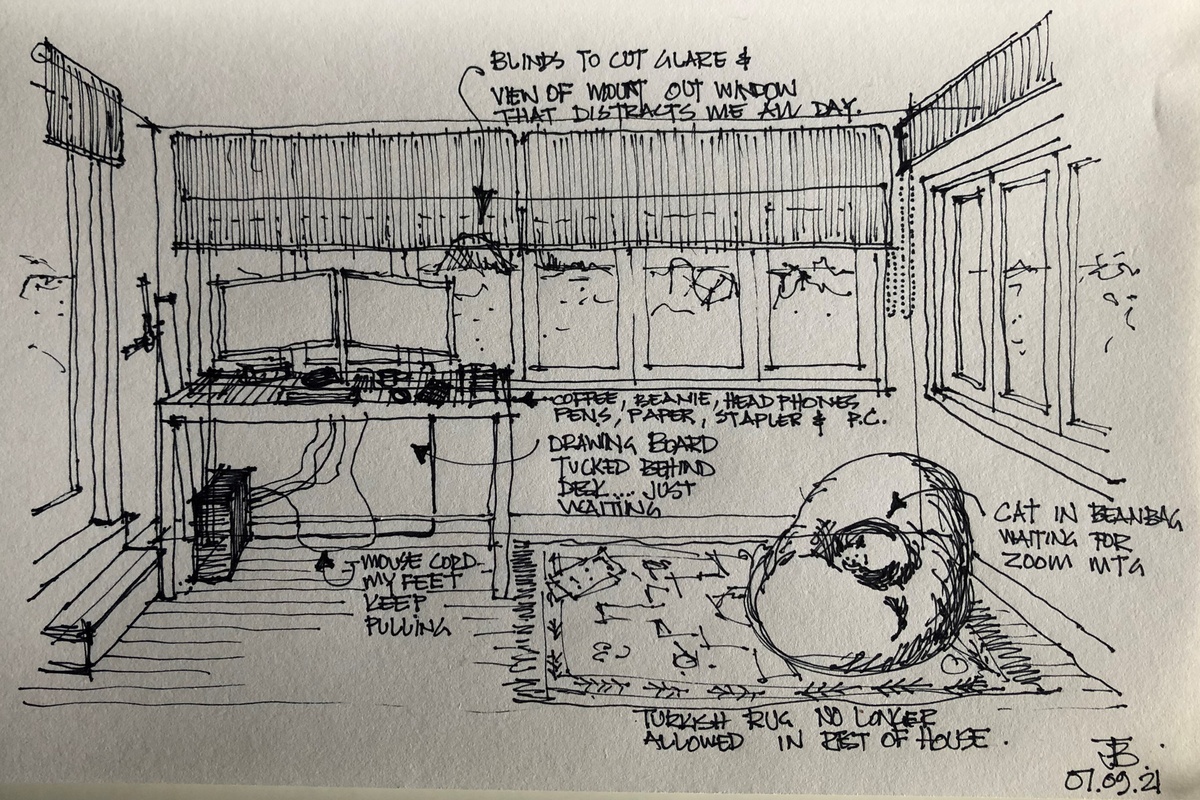 BLINDS TO CUT GLARE &
VIEW OF MOUNT OUT WINDOW
THAT DISTRACTS ME ALL DAY.
COFFEE, BEANIE, HEADPHONES
PENS, PAPER, STAPLER & P.C.
DRAWING BOARD
TUCKED BEHIND
DESK.... JUST
WAITING
CAT IN BEANBAG
WAITING FOR
ZOOM MTG
MOUSE CORD
MY FEET
KEEP
PULLING
TURKISH RUG NO LONGER
ALLOWED IN REST OF HOUSE.
07.09.21